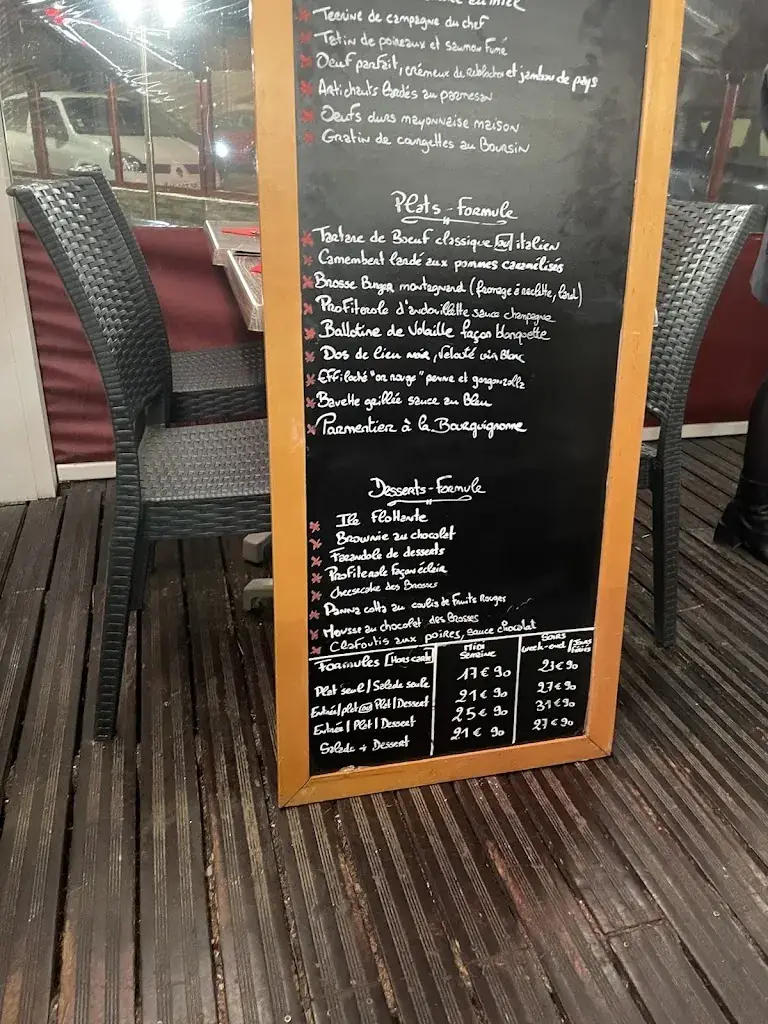 Terrine de campagne du chef
Tatin de poireaux et saumon fumé
Oeuf parfait, crémeux de Reblochon et jambon de pays
Artichauts lardés au parmesan
Oeufs durs mayonnaise maison
Gratin de courgettes au Boursin
Plats - Formule
Tartare de Boeuf classique ou italien
Camembert lardé aux pommes caramélisés
Brosse Burger montagnard (fromage à raclette, lard)
Profiterole d'andouillette sauce champagne
Ballotine de Volaille façon blanquette
Dos de lieu noir, velouté vin Blanc
Effiloché "on rouge" penne et gorgonzolla
Bavette grillée sauce au Bleu
Parmentier à la Bourguignonne
Desserts - Formule
Ile Flottante
Brownie au chocolat
Farandole de desserts
Profiterole façon éclair
Cheesecake des Brosses
Panna cotta au coulis de Fruits Rouges
Mousse au chocolat des Brosses
Clafoutis aux poires, sauce chocolat
Formules (Hors carte) Midi Semaine Soirs week-end / Jours Fériés
Plat seul / Salade seule 17€90 23€90
Entrée / plat ou Plat / Dessert 21€90 27€90
Entrée / Plat / Dessert 25€90 31€90
Salade + Dessert 21€90 27€90